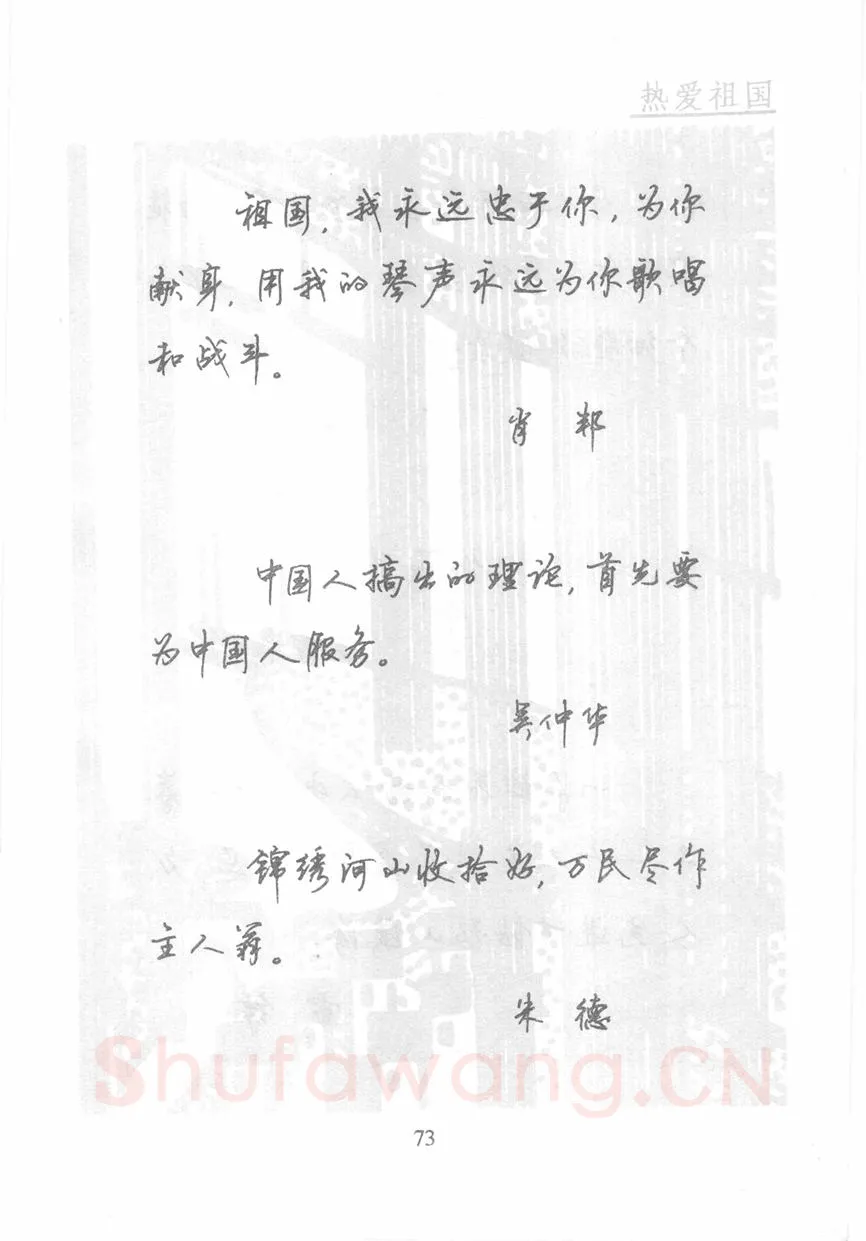 热爱祖国
祖国，我永远忠于你，为你
献身，用我的琴声永远为你歌唱
和战斗。
肖 邦
中国人搞出的理论，首先要
为中国人服务。
吴仲华
锦绣河山收拾好，万民尽作
主人翁。
朱 德
Shufawang.CN
73